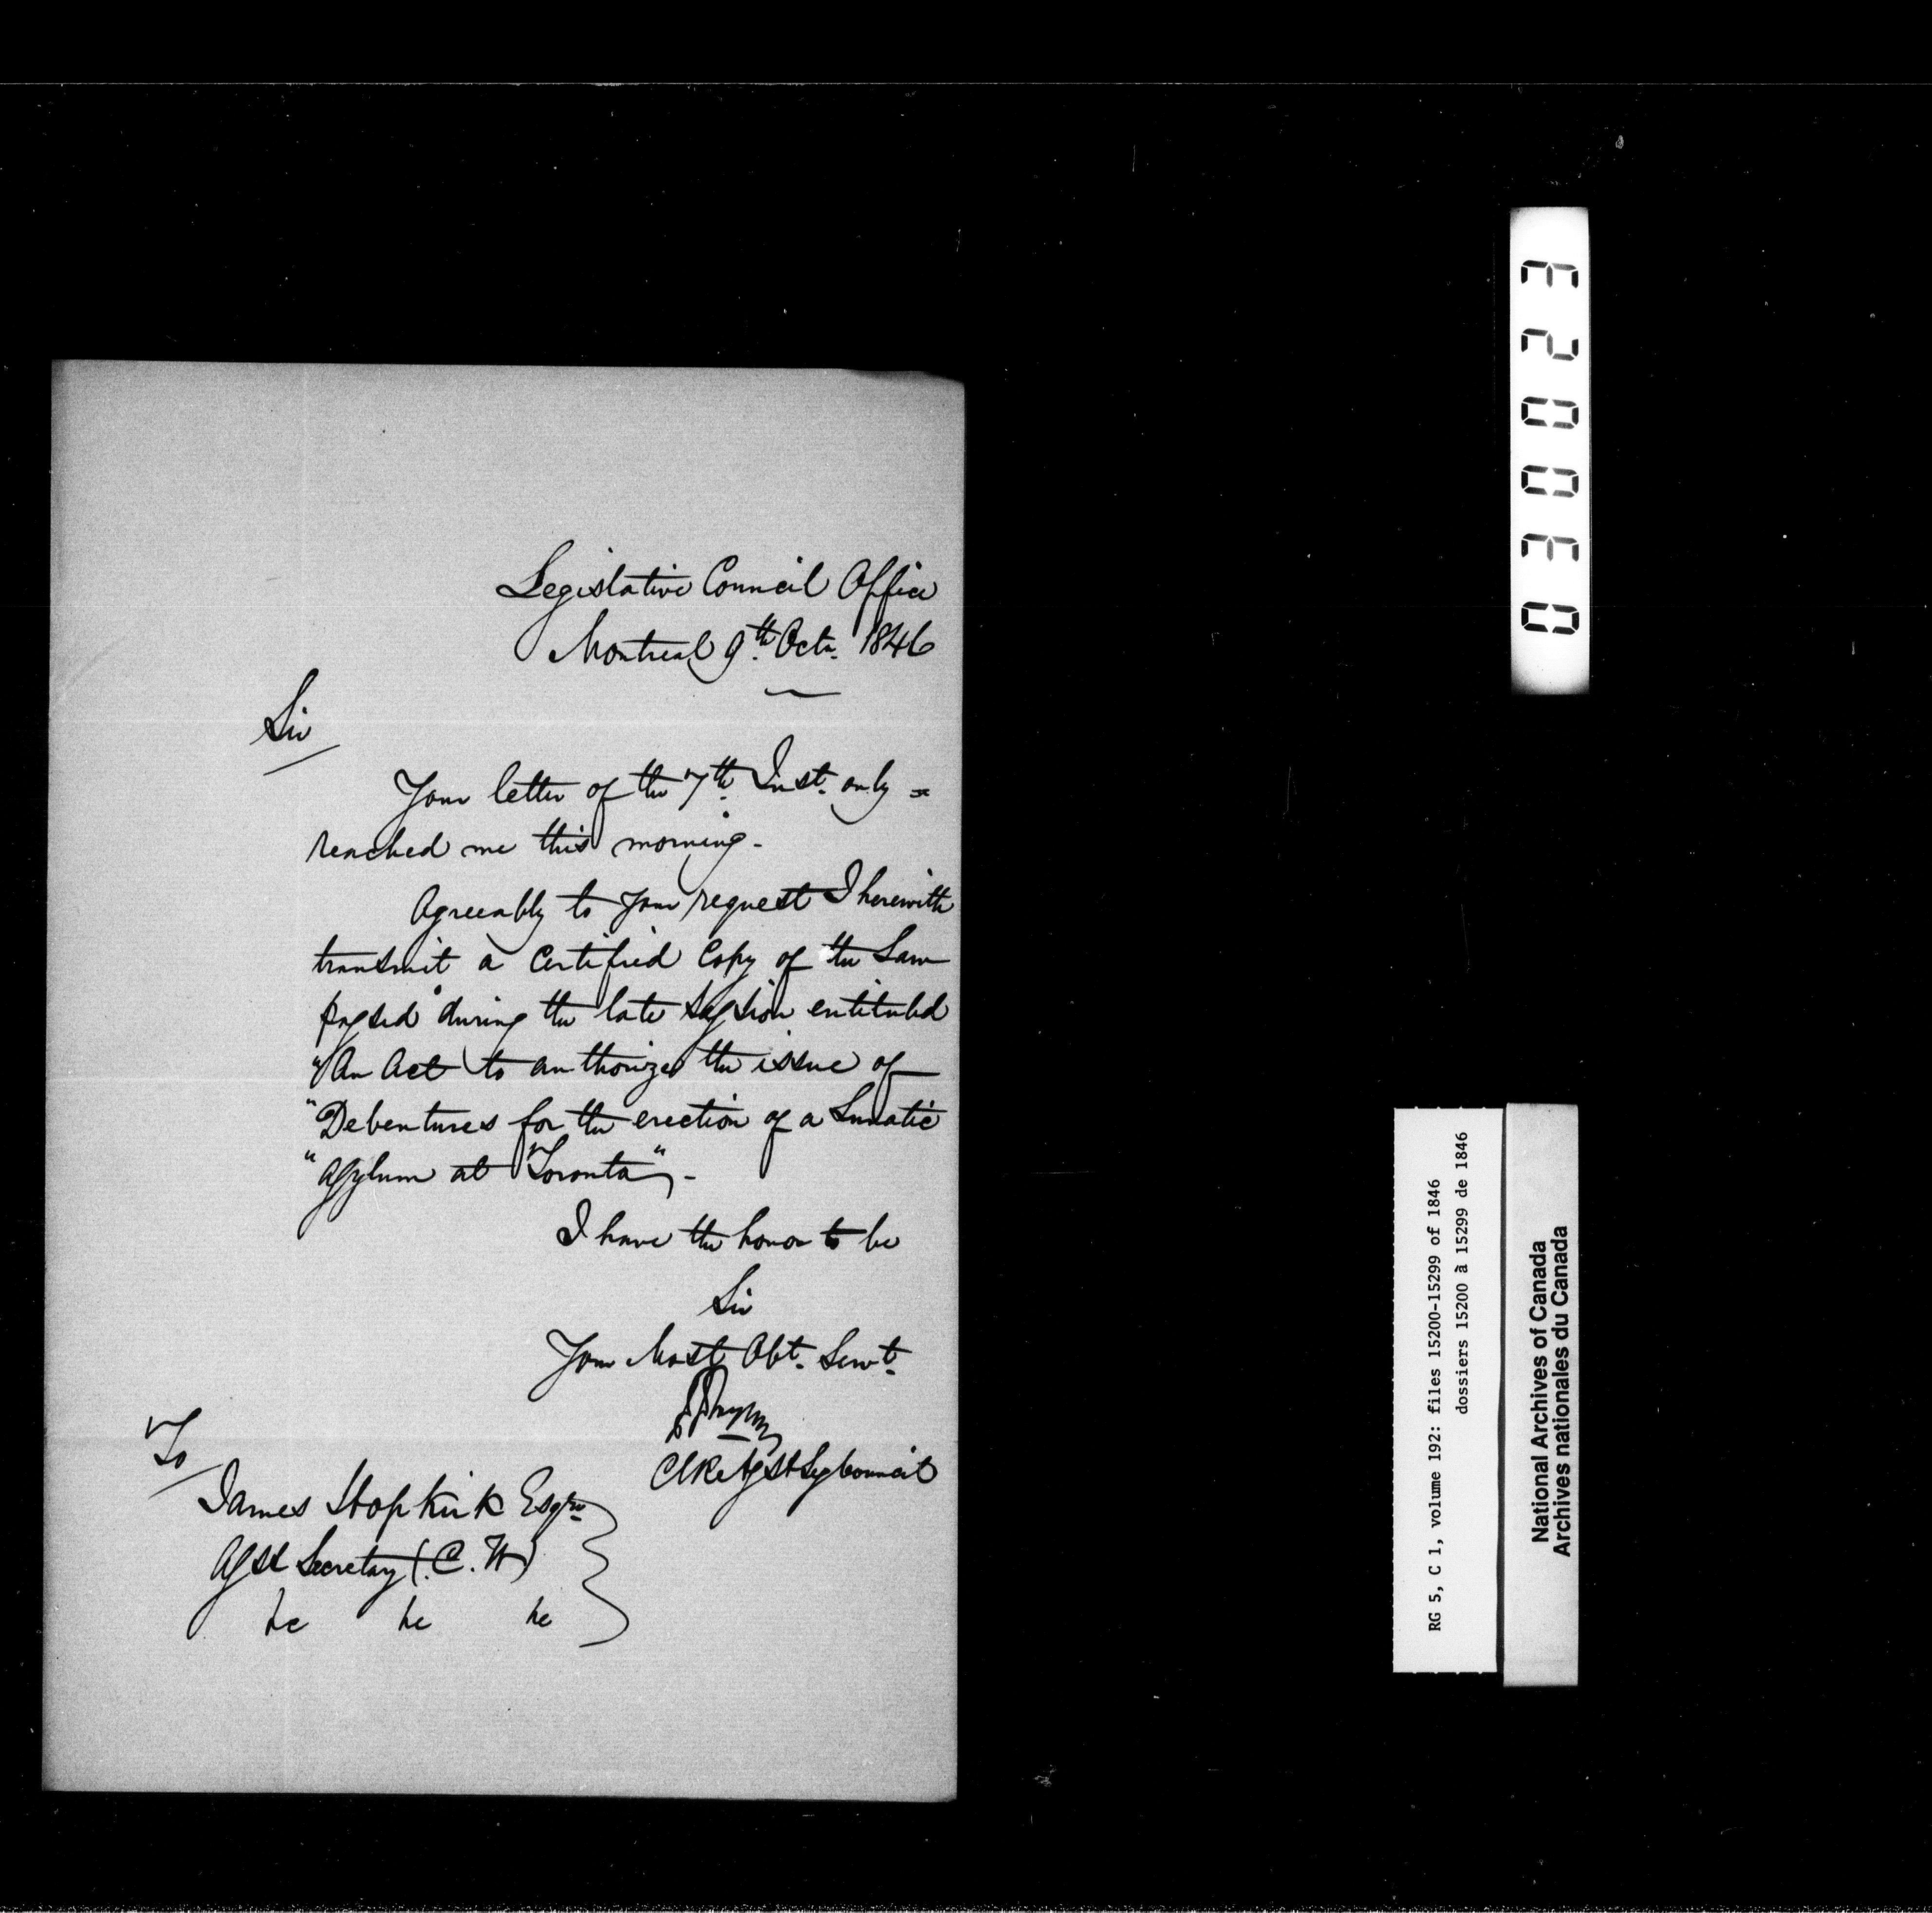 Legislative Council Office
Montreal 9th Octr. 1846
Sir
Your letter of the 7th Inst. only =
reached me this morning -
Agreeably to your request I herewith
transmit a Certified Copy of the Law
passed during the late Session entituled
"An Act to authorize the issue of
"Debentures for the erection of a Lunatic
"Asylum at Toronto" -
I have the honor to be
Sir
Your Most Obt. Servt.
Clk Asst Leg Council
To
James Hopkirk Esqre
Asst Secretary (C. W)
&c &c &c
030023
RG 5, C 1, volume 192: files 15200-15299 of 1846
dossiers 15200 à 15299 de 1846
National Archives of Canada
Archives nationales du Canada